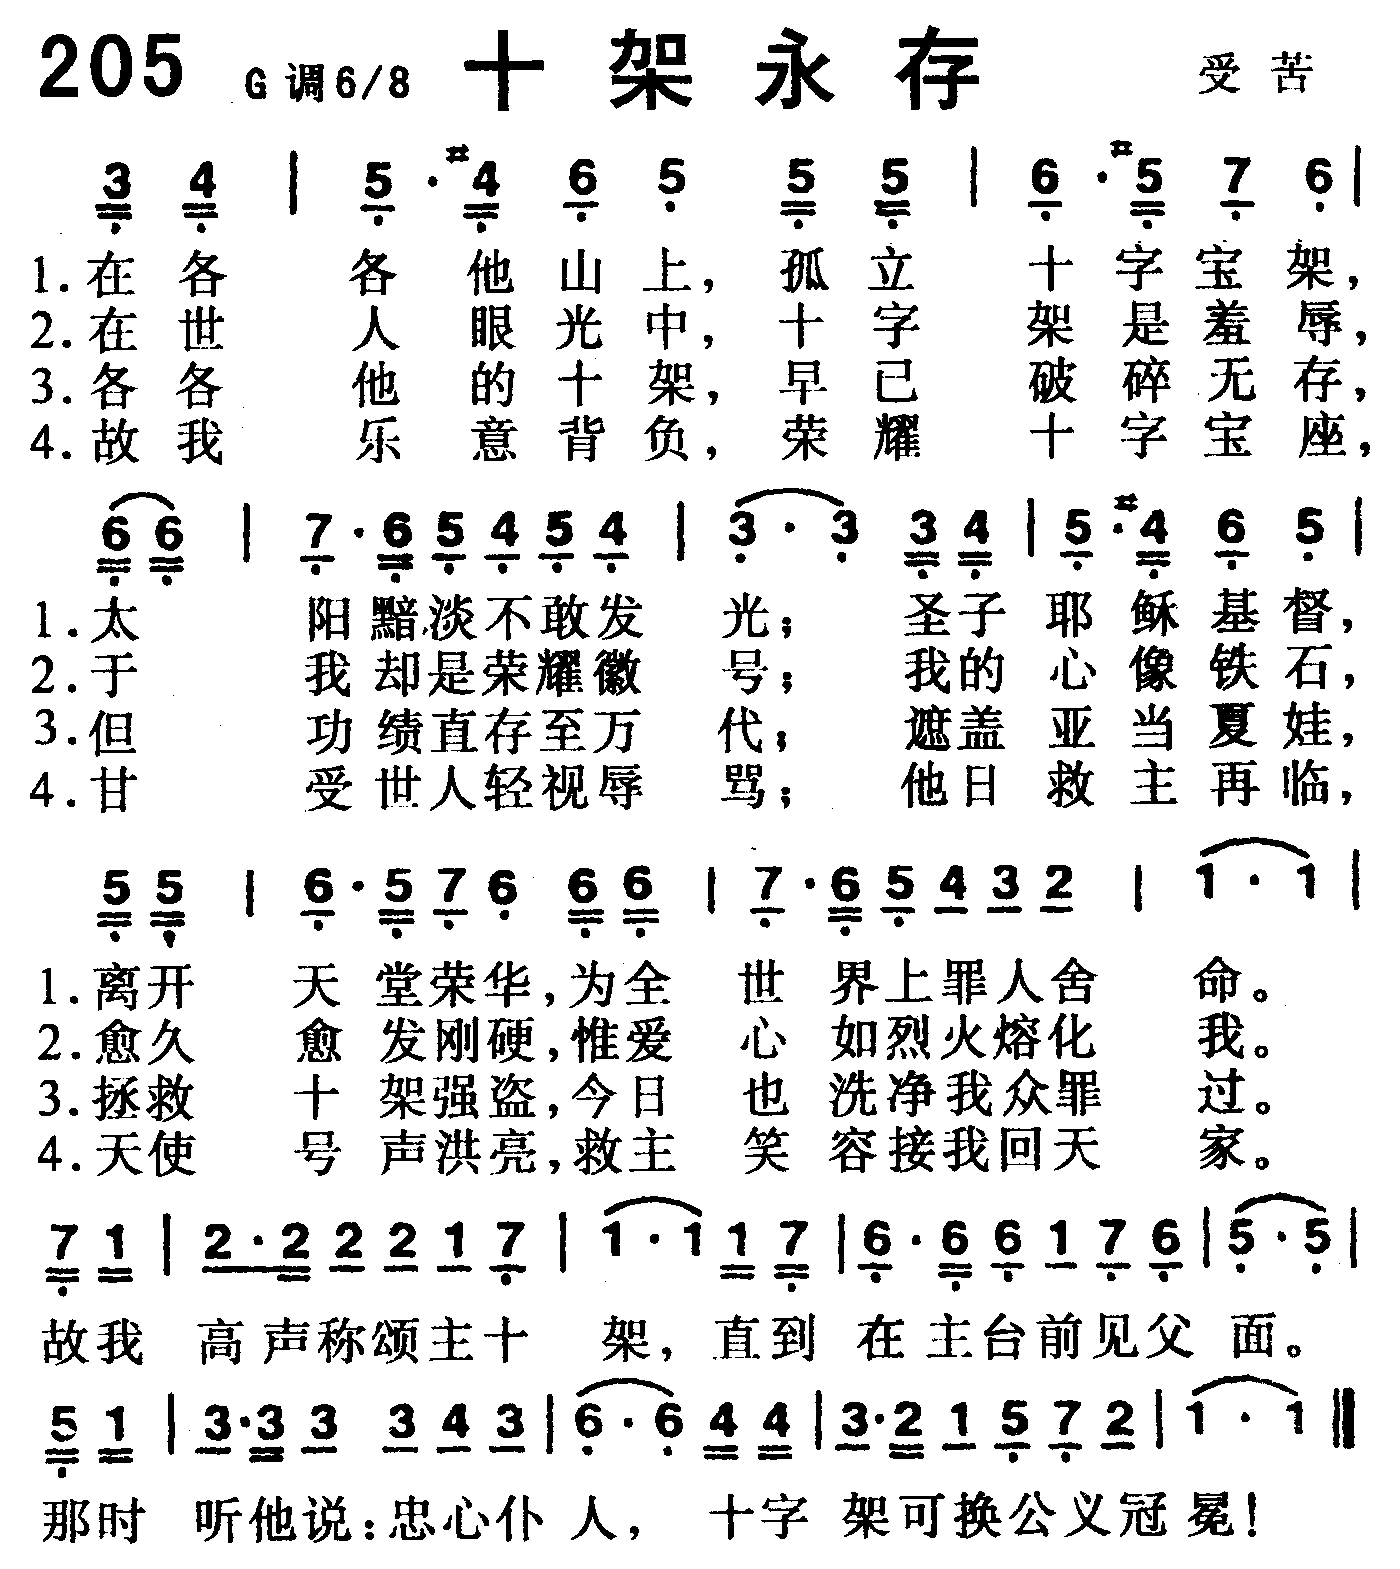 205 G 调6/8 十架永存 受苦
3 4 | 5 · #4 6 5 5 5 | 6 · #5 7 6 |
1.在各 各他山上,孤立 十字宝架,
2.在世 人眼光中,十字 架是羞辱,
3.各各 他的十架,早已 破碎无存,
4.故我 乐意背负,荣耀 十字宝座,
6 6 | 7 · 6 5 4 5 4 | 3 · 3 3 4 | 5 · #4 6 5 |
1.太 阳黯淡不敢发 光; 圣子 耶稣基督,
2.于 我却是荣耀徽 号; 我的 心像铁石,
3.但 功绩直存至万 代; 遮盖 亚当夏娃,
4.甘 受世人轻视辱 骂; 他日 救主再临,
5 5 | 6 · 5 7 6 6 6 | 7 · 6 5 4 3 2 | 1 · 1 |
1.离开 天堂荣华,为全 世界上罪人舍 命。
2.愈久 愈发刚硬,惟爱 心如烈火熔化 我。
3.拯救 十架强盗,今日 也洗净我众罪 过。
4.天使 号声洪亮,救主 笑容接我回天 家。
7 1 | 2 · 2 2 2 1 7 | 1 · 1 1 7 | 6 · 6 6 1 7 6 | 5 · 5 |
故我 高声称颂主十 架,直到 在主台前见父 面。
5 1 | 3 · 3 3 3 4 3 | 6 · 6 4 4 | 3 · 2 1 5 7 2 | 1 · 1 ‖
那时 听他说:忠心仆 人, 十字 架可换公义冠 冕!